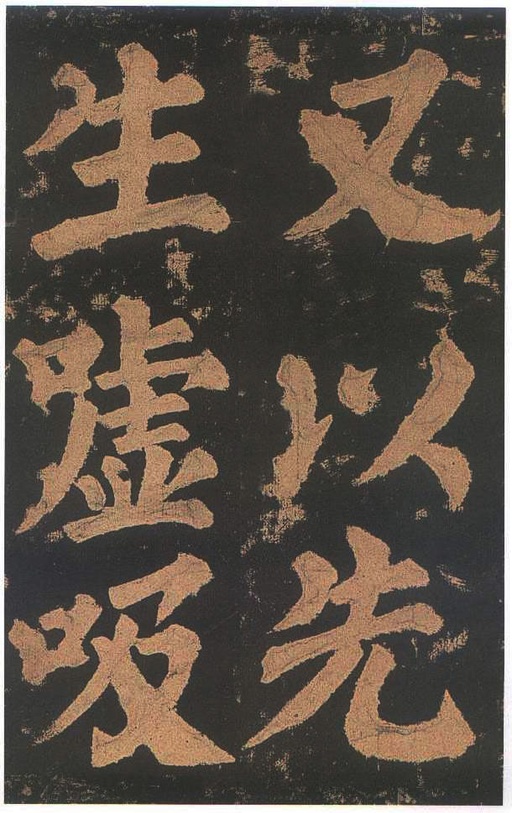 又以先
生嘘吸